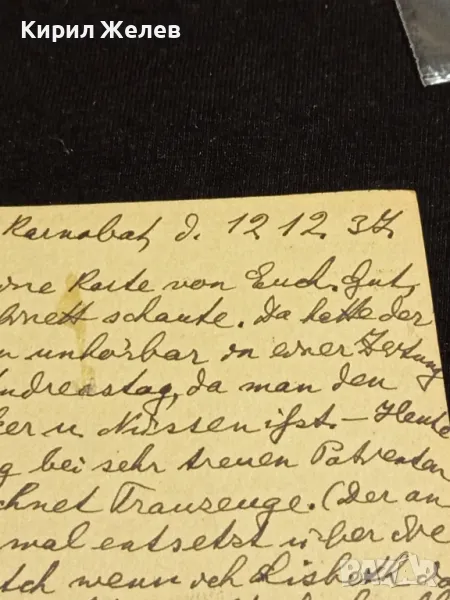 Кирил Желев
Karnobat, d. 12 12. 37.
ine Karte von Euch. Gut,
brett schaute. Da hatte der
n unhörbar in einer Zeitung
Andreastag, da man den
ker u. Nüssen ißt. – Heute
g bei sehr treuen Patienten
chnet Trauzeuge. (Der an
mal entsetzt über die
tch wenn ich Lisbeth da
BAZAR